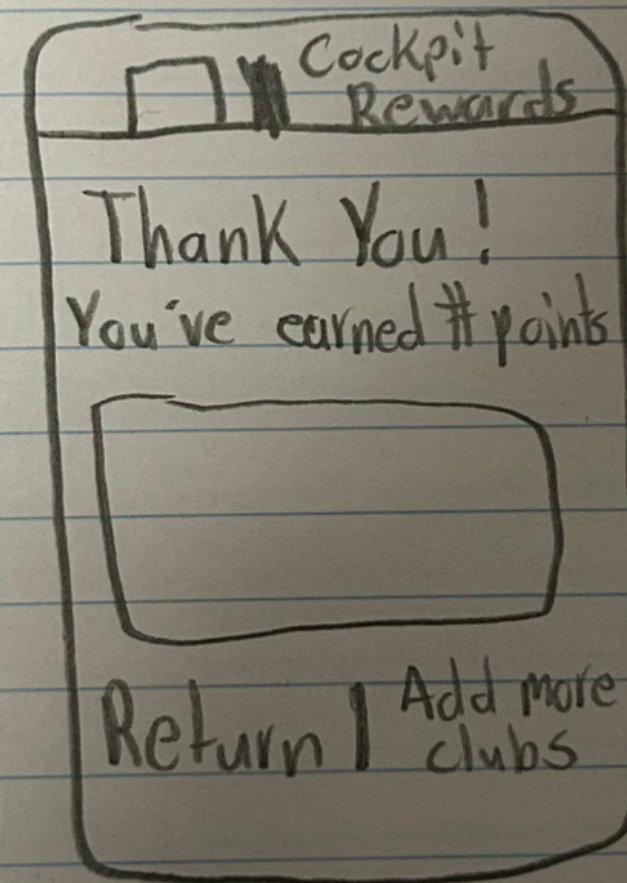 Cockpit
Rewards
Thank You!
You've earned # points
Return | Add more
clubs